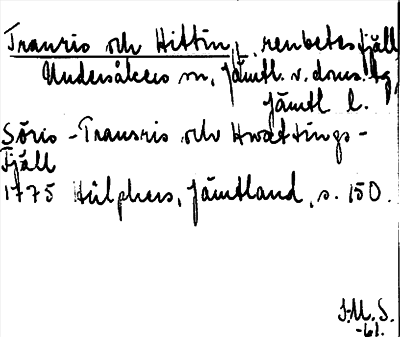 Tranris och Hittin, renbetesfjäll
Undersåkers sn, Jämtl. v. doms. tg,
Jämtl l.
Söris - Transris och Hwattings-
Fjäll
1775 Hülphers, Jämtland, s. 150.
J.M.S.
-61.